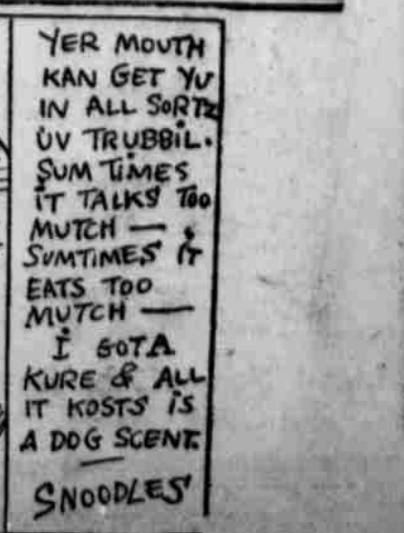 YER MOUTH
KAN GET YU
IN ALL SORTZ
UV TRUBBIL.
SUM TIMES
IT TALKS TOO
MUTCH —
SUMTIMES IT
EATS TOO
MUTCH —
I GOTA
KURE & ALL
IT KOSTS IS
A DOG SCENT.
—
SNOODLES